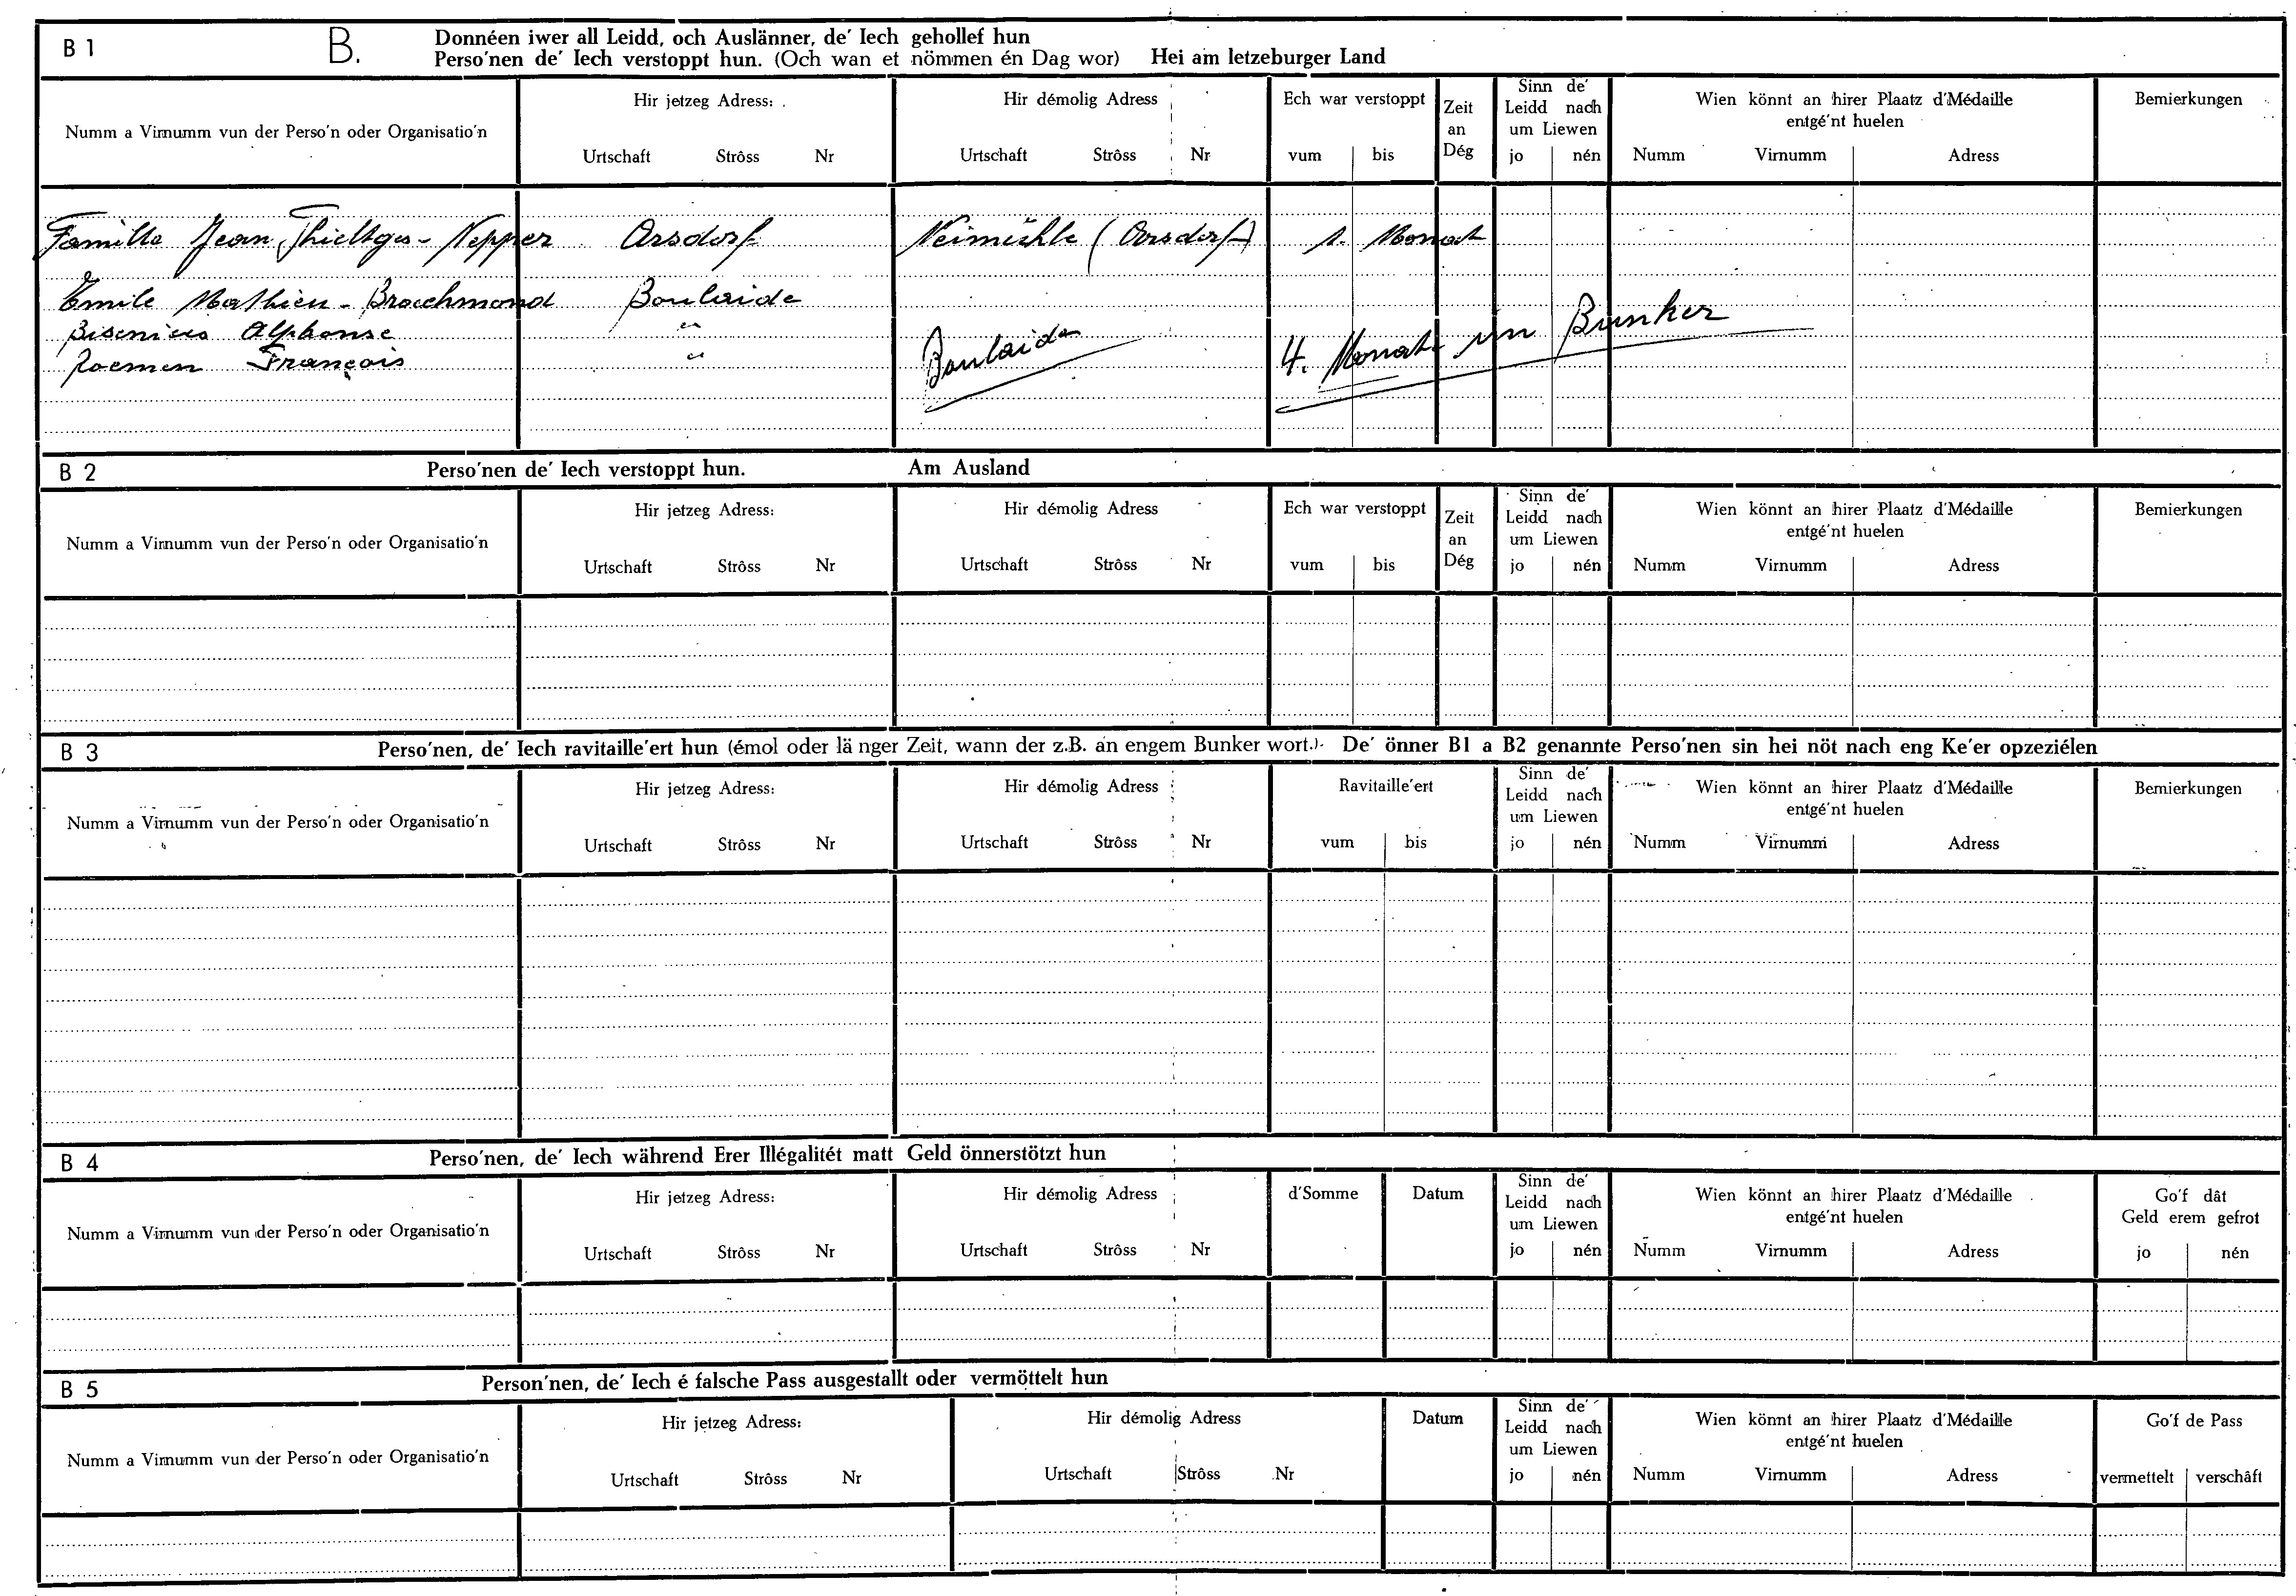 B 1 B. Donnéen iwer all Leidd, och Auslänner, de′ Iech gehollef hun
Perso′nen de′ Iech verstoppt hun. (Och wan et nömmen én Dag wor) Hei am letzeburger Land
Numm a Virnumm vun der Perso′n oder Organisatio′n
Hir jetzeg Adress:
Urtschaft Strôss Nr
Hir démolig Adress
Urtschaft Strôss Nr
Ech war verstoppt
vum bis
Zeit
an
Dég
Sinn de′
Leidd nach
um Liewen
jo nén
Wien könnt an hirer Plaatz d′Médaille
entgé′nt huelen
Numm Virnumm Adress
Bemierkungen
Famille Jean Thieltges-Nepper Arsdorf Neimühle (Arsdorf) 1. Monat
Emile Mathieu - Brachmond Boulaide
Alphonse "
François "
Boulaide 4. Monate im Bunker
B 2 Perso′nen de′ Iech verstoppt hun. Am Ausland
Numm a Virnumm vun der Perso′n oder Organisatio′n
Hir jetzeg Adress:
Urtschaft Strôss Nr
Hir démolig Adress
Urtschaft Strôss Nr
Ech war verstoppt
vum bis
Zeit
an
Dég
Sinn de′
Leidd nach
um Liewen
jo nén
Wien könnt an hirer Plaatz d′Médaille
entgé′nt huelen
Numm Virnumm Adress
Bemierkungen
B 3 Perso′nen, de′ Iech ravitaille′ert hun (émol oder länger Zeit, wann der z.B. an engem Bunker wort.) De′ önner B1 a B2 genannte Perso′nen sin hei nöt nach eng Ke′er opzeziélen
Numm a Virnumm vun der Perso′n oder Organisatio′n
Hir jetzeg Adress:
Urtschaft Strôss Nr
Hir démolig Adress
Urtschaft Strôss Nr
Ravitaille′ert
vum bis
Sinn de′
Leidd nach
um Liewen
jo nén
Wien könnt an hirer Plaatz d′Médaille
entgé′nt huelen
Numm Virnumm Adress
Bemierkungen
B 4 Perso′nen, de′ Iech während Erer Illégalitét matt Geld önnerstötzt hun
Numm a Virnumm vun der Perso′n oder Organisatio′n
Hir jetzeg Adress:
Urtschaft Strôss Nr
Hir démolig Adress
Urtschaft Strôss Nr
d′Somme
Datum
Sinn de′
Leidd nach
um Liewen
jo nén
Wien könnt an hirer Plaatz d′Médaille
entgé′nt huelen
Numm Virnumm Adress
Go′f dât
Geld erem gefrot
jo nén
B 5 Person′nen, de′ Iech é falsche Pass ausgestallt oder vermöttelt hun
Numm a Virnumm vun der Perso′n oder Organisatio′n
Hir jetzeg Adress:
Urtschaft Strôss Nr
Hir démolig Adress
Urtschaft Strôss Nr
Datum
Sinn de′
Leidd nach
um Liewen
jo nén
Wien könnt an hirer Plaatz d′Médaille
entgé′nt huelen
Numm Virnumm Adress
Go′f de Pass
vermettelt verschâft